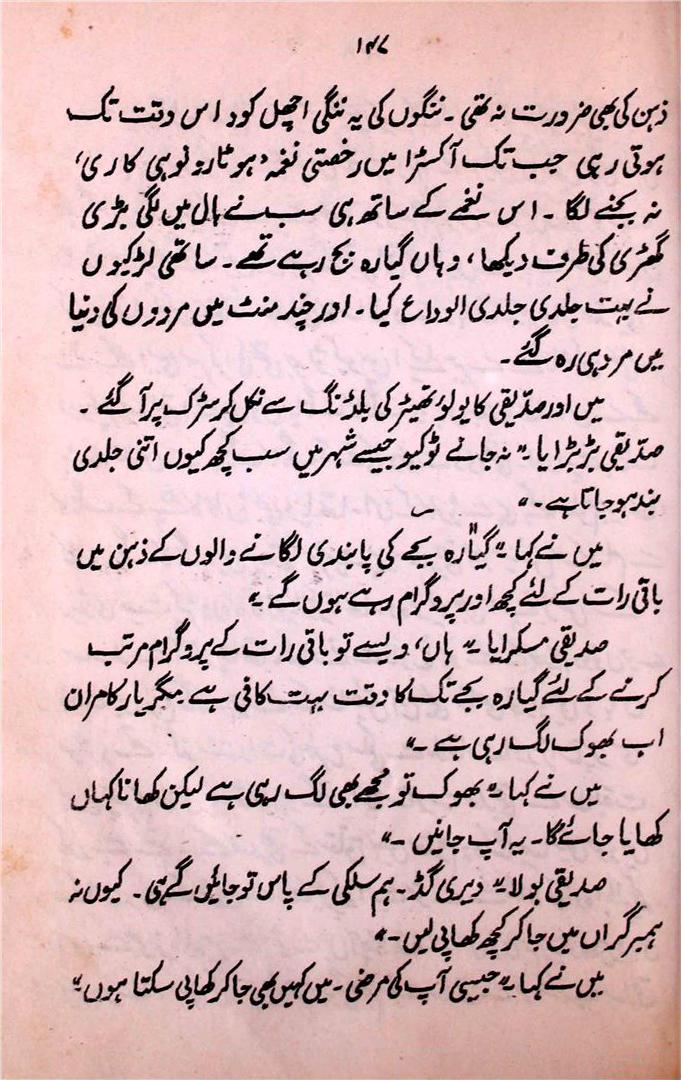 ۱۴۷
ذہن کی بھی ضرورت نہ تھی ۔ ننگوں کی یہ ننگی اچھل کود اس وقت تک
ہوتی رہی جب تک آکسٹرا میں رخصتی نغمہ ’ہوتارو نو ہی کاری‘
نہ بجنے لگا ۔ اس نغمے کے ساتھ ہی سب نے ہال میں لگی بڑی
گھڑی کی طرف دیکھا ، وہاں گیارہ بج رہے تھے ۔ ساتھی لڑکیوں
نے بہت جلدی جلدی الوداع کیا ۔ اور چند منٹ میں مردوں کی دنیا
میں مرد ہی رہ گئے ۔
میں اور صدّیقی کایولو تھیٹر کی بلڈنگ سے نکل کر سڑک پر آ گئے ۔
صدّیقی بڑبڑایا ۔" نہ جانے ٹوکیو جیسے شہر میں سب کچھ کیوں اتنی جلدی
بند ہو جاتا ہے ۔"
میں نے کہا ۔" گیارہ بجے کی پابندی لگانے والوں کے ذہن میں
باقی رات کے لئے کچھ اور پروگرام رہے ہوں گے ۔"
صدیقی مسکرایا ۔" ہاں ، ویسے تو باقی رات کے پروگرام مرتب
کرنے کے لئے گیارہ بجے تک کا وقت بہت کافی ہے ۔ مگر یار کامران
اب بھوک لگ رہی ہے ۔"
میں نے کہا ۔" بھوک تو مجھے بھی لگ رہی ہے لیکن کھانا کہاں
کھایا جائے گا ۔ یہ آپ جانیں ۔"
صدیقی بولا ۔" ویری گڈ ۔ ہم سلکی کے پاس تو جائیں گے ہی ۔ کیوں نہ
ہمبرگراں میں جا کر کچھ کھا پی لیں ۔"
میں نے کہا ۔" جیسی آپ کی مرضی ۔ میں کہیں بھی جا کر کھا پی سکتا ہوں ۔"